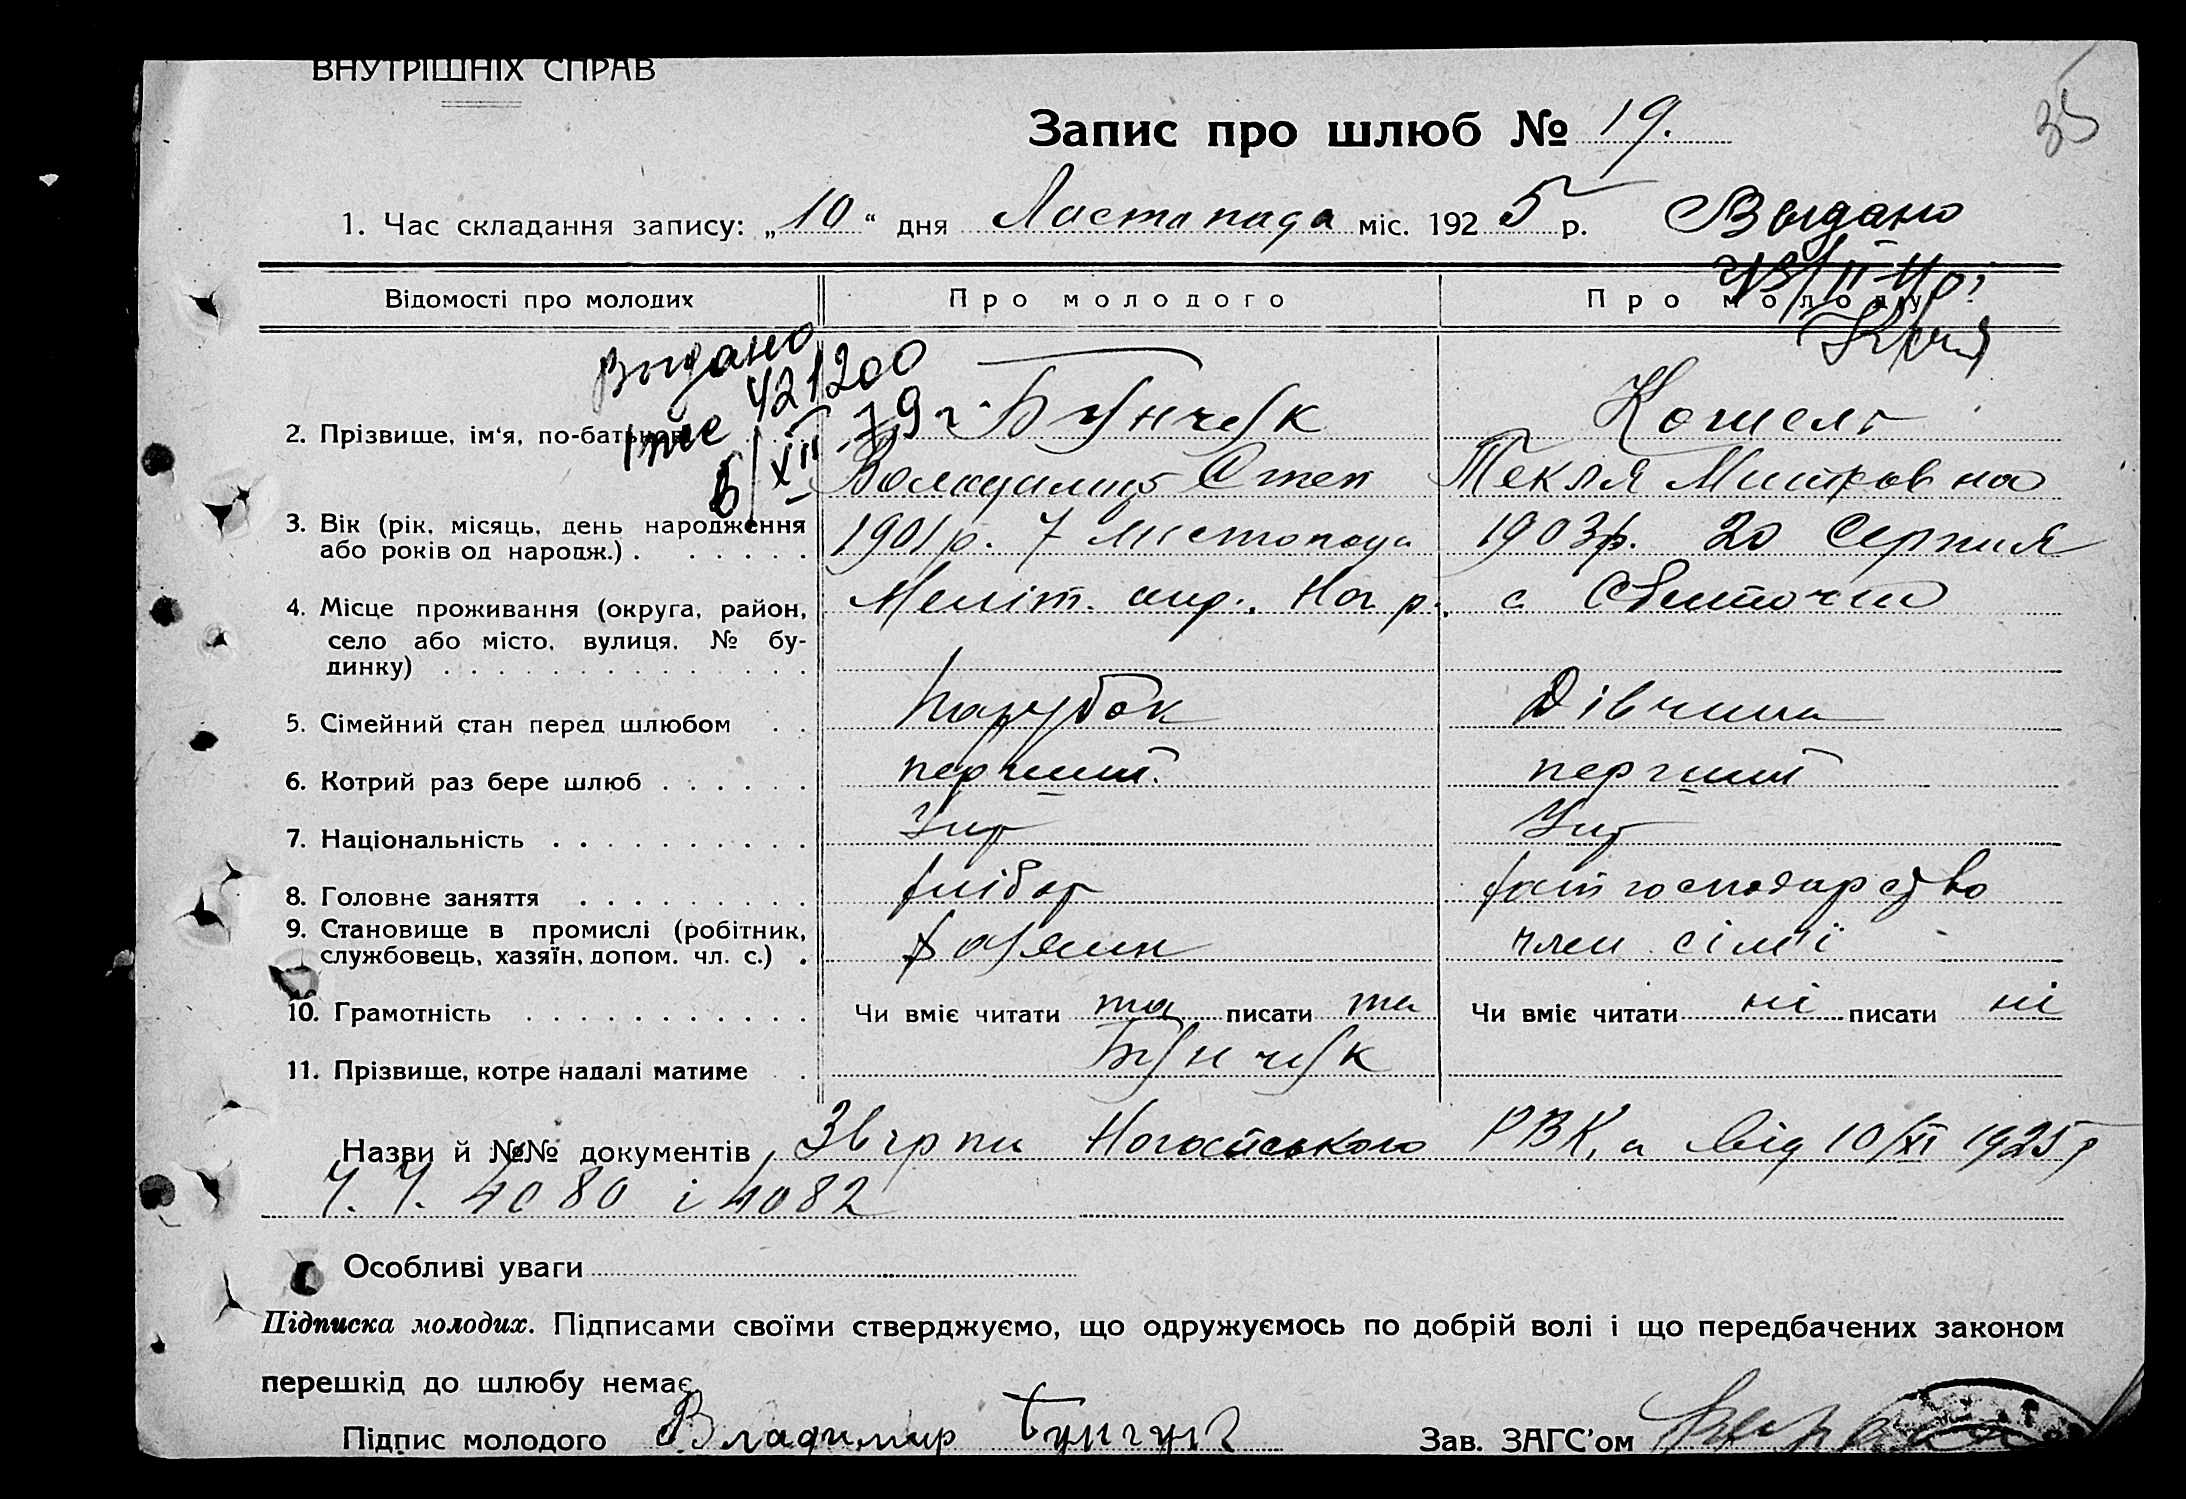 ВНУТРІШНІХ СПРАВ
35
Запис про шлюб № 19.
1. Час складання запису: „10“ дня Листопада міс. 1925 р.
Выдано
Відомості про молодих
Про молодого
Про молоду
Выдано
421200
6/XII
79 г.
2. Прізвище, ім‘я, по-батькові
Бунчук
Кошель
Володимир Степ
Текля Митровна
3. Вік (рік, місяць, день народження
або років од народж.)
1901 р. 7 Листопада
1903 р. 20 Серпня
4. Місце проживання (округа, район,
село або місто, вулиця, № бу-
динку)
Меліт. окр., Ног р.,
с
5. Сімейний стан перед шлюбом
Парубок
Дівчина
6. Котрий раз бере шлюб
перший
перший
7. Національність
Укр
Укр
8. Головне заняття
хлібор
хат господарство
9. Становище в промислі (робітник,
службовець, хазяїн, допом. чл. с.)
хазяин
член сімї
10. Грамотність
Чи вміє читати та писати та
Чи вміє читати ні писати ні
11. Прізвище, котре надалі матиме
Бунчук
Назви й №№ документів Ногайського РВК, а від 10/XI 1925 р
Ч. Ч. 4080 і 4082
Особливі уваги
Підписка молодих. Підписами своїми стверджуємо, що одружуємось по добрій волі і що передбачених законом
перешкід до шлюбу немає.
Підпис молодого Владимир Бунчук
Зав. ЗАГС’ом